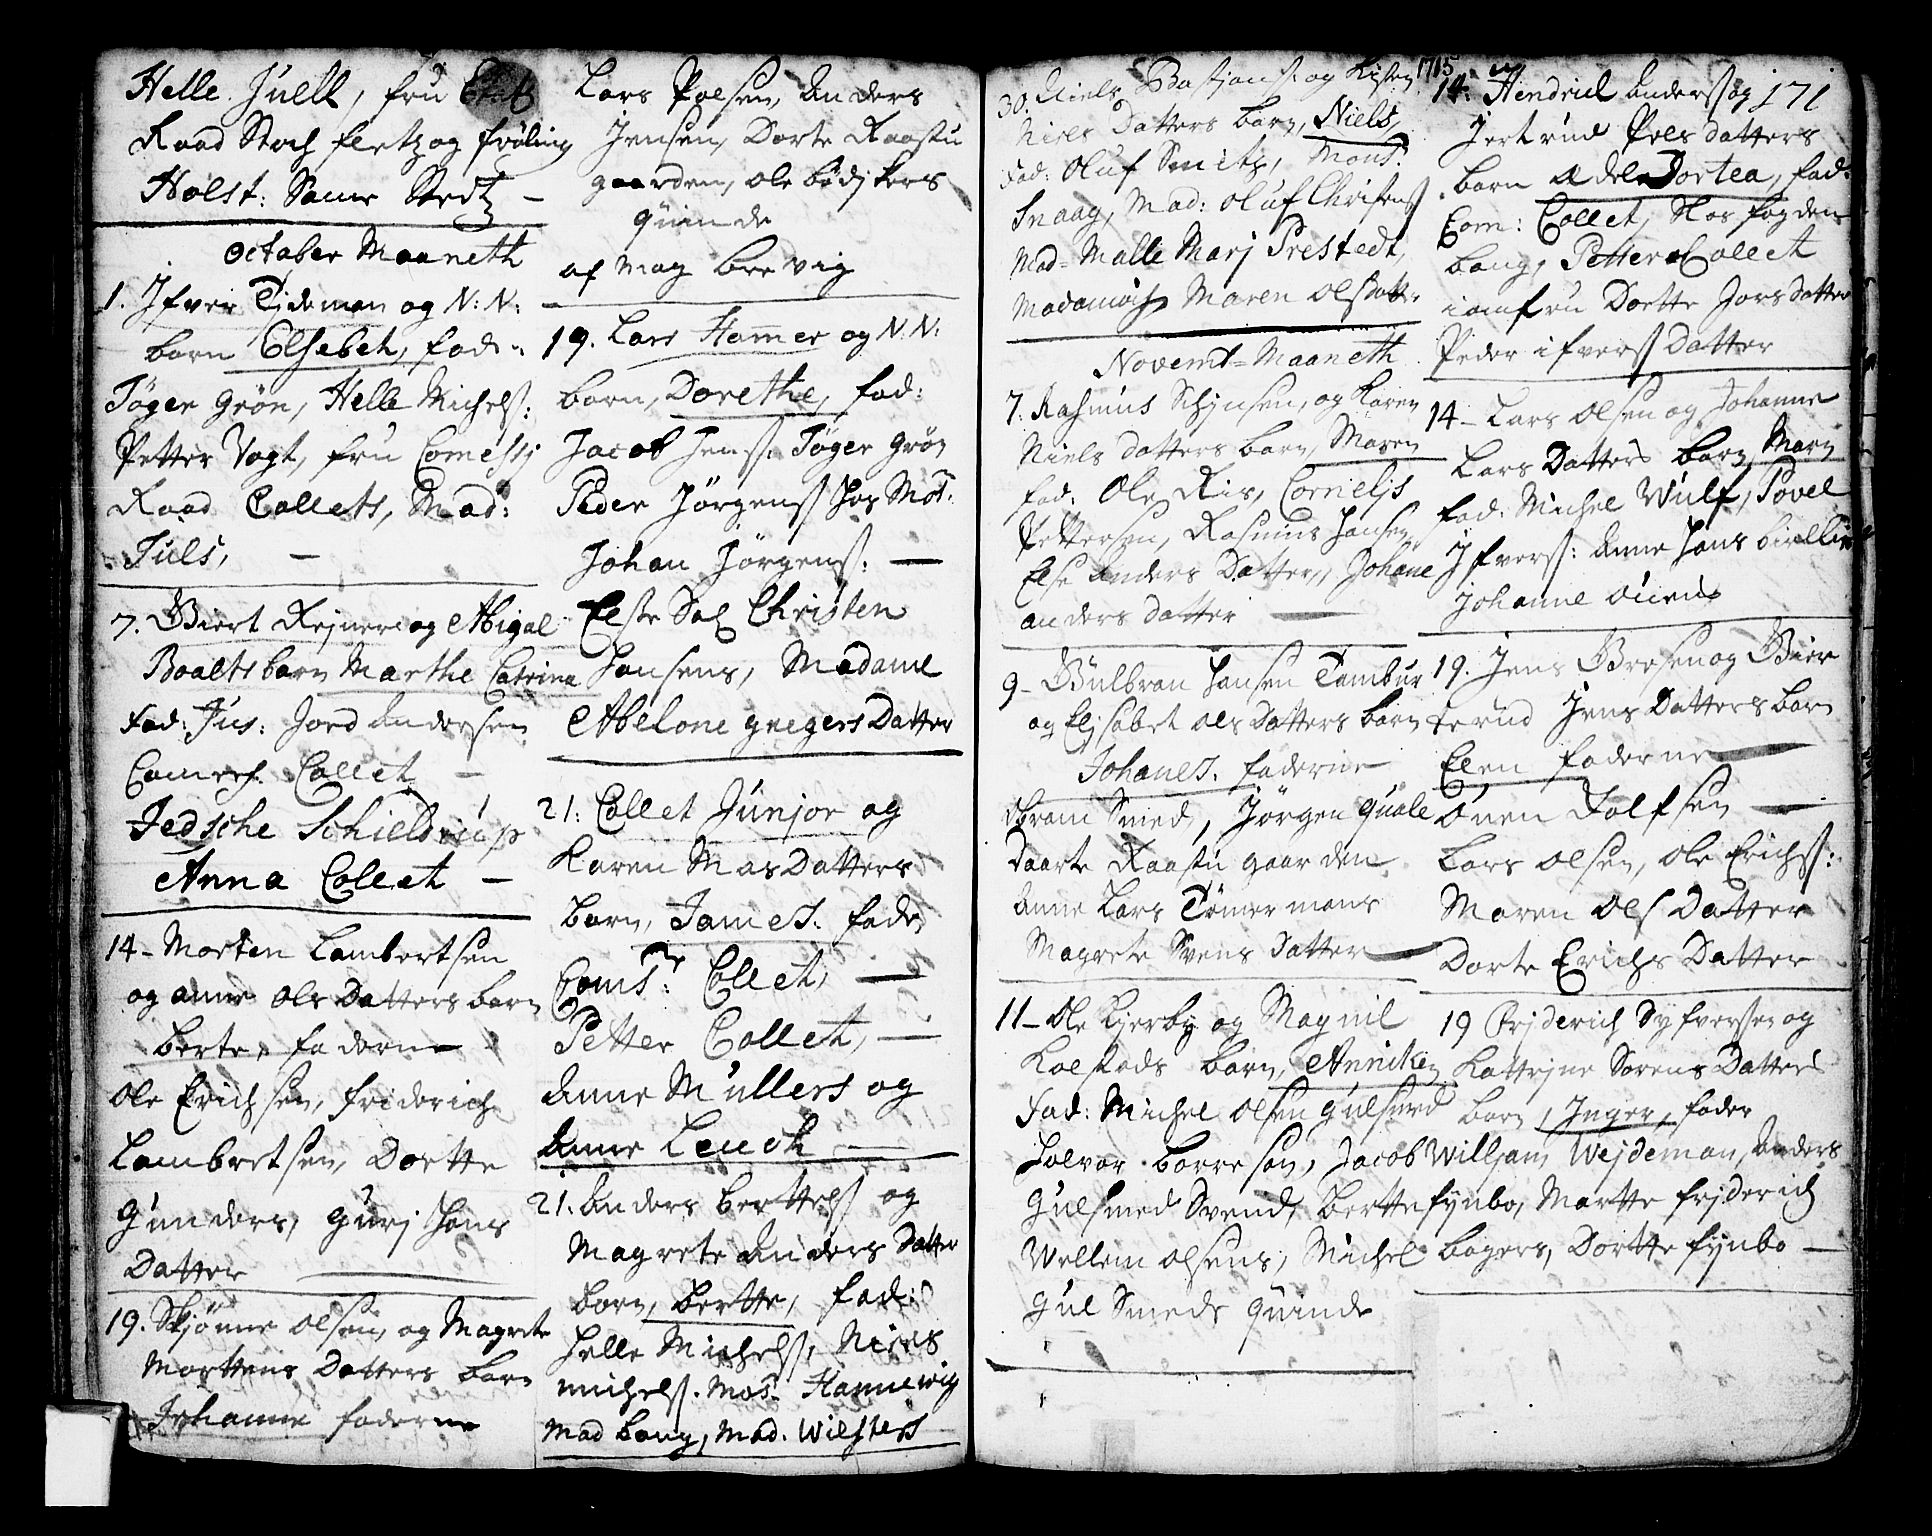 Helle Juell, fru Etats
Raad Stoch fletz og frøling
Holst: Same Stedtz –
October Maaneth
1. Ifver Tideman og N: N:
barn Elsebeh, fad:
Tøger Grøn, Helle Michels:
Petter Vogt, fru Comessi
Raad Collets, Mad:
Juls, –
7. Giert Rejner og Abigal
Boalts barn Marthe Catrina
Fad: Jus: Jord Andersen
Comerf. Collet –
Jedsche Schieldrup
Anna Collet –
14 – Morten Lambertsen
og anne Ols Datters barn
berte, faderne
Ole Erichsen, friderich
Lambretsen, Dortte
Gunders, gurj Hans
Datter
19. Skjønne olsen, og Magrete
Mortens Datters barn
Johanne faderne
Lars Polsen, Anders
Jensen, Dorte Raastu
gaarden, ole bødjkers
quinde
af Mag brevig
19. Lars Hamer og N: N:
barn, Dorethe, fad:
Jacob Jens. Tøger Grøn
Peder Jørgens Hos Mos:
Johan Jørgens: –
Elste Sal Christen
Hansens, Madame
Abelone gregers Datter
21: Collet Junjor og
Karen Mas Datters
barn, James. fad
Coms: Collet, –
Petter Collet, –
Anne Müllers og
Anne Leuch –
21. Anders berttels og
Magrete Anders Datter
barn, bertte, fad:
Helle Michels, Niels
michels. Mos. Hannewig
Mad bang, Mad. Wilsters
30. Niels Bastians. og Lisen
Niels Datters barn, Niels,
Fad: Oluf Smitz, Mons:
Snaag, Mad: oluf Christens
Mad= Malle Marj Prestedt,
Madamois Maren Ols Datt:
Novemt= Maaneth
7. Rasmus Schynsen, og Karen
Niels datters barn, Maren
fad: Ole Ris, Cornelis
Pettersen, Rasmus Hansen
Else Anders Datter, Johane
anders datter
9 – Gulbran Hansen Tambur
og Elisabet ols Datters barn
Johanes. faderne
Abram Smed, Jørgen Quale
Daarte Raastu gaarden
Anne Lars Tømermans
Magrete Svens Datter
11 – Ole Kierby og Magnil
Kolstads barn, Anniken
Fad: Michel olsen gulsmed
Halvor borresen, Jacob
Gulsmed Svend, bertte
Wellem olsens, Michel
Gul Smeds quinde
1715
171
14: Hendrick Anders og
Jertrud Pels datters
barn Adel Dortea, fad:
Com: Collet, Slos fogden
bang, Petter Collet
iomfru Dortte Jorsdatter
Peder ifvers Datter
14 – Lars olsen og Johanne
Lars Datters barn Marn
fad: Michel Wulf, Povel
Ifvers: Anne Hans
Johanne ouens
19. Jens Brosen og Gier
terud Jens Datters barn
Elen faderne
Ouen Tolfsen –
Lars olsen, Ole Erichs:
Maren Ols Datter
Dorte Erichs Datter
19 Frjderich Syfversen og
Kattrjne Sorens Datters
barn, Inger, fader
Willjam Wejdeman, Anders
fynbo, Martte frjderich
bagers, Dortte fynbo –